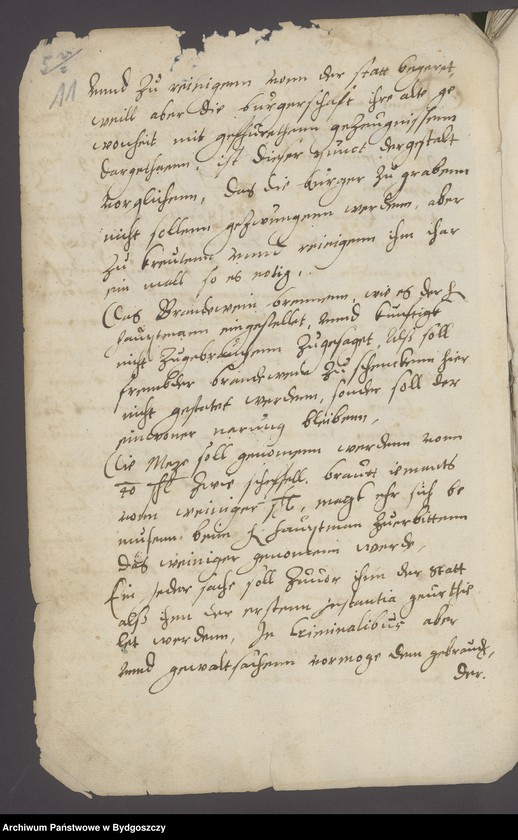 11
vnnd zu reinigenn vonn der statt begeret,
weill aber die burgerschafft ihre alte ge
wonheit mit gefurethenn gezeugnissenn
dargethaenn, ist dieser punct dergestalt
vorglichenn, das die burger zu grabenn
nicht sollenn gezwungenn werdenn, aber
zu kreutenn vnnd reinigenn ihm jhar
ein mall so es notig.
Das Brandewein brennenn, wie es der H
hauptmann eingestellet, vnnd kunfftigk
nicht zugebrauchenn zugesaget, Alß soll
frembder brandewein zu schenckenn hier
nicht gestatet werdenn, sonder soll der
einwoner narung bleibenn,
Die Metze soll genomenn werdenn vonn
40 zwe scheffell. brauet iemants
vonn weiniger, magk ehr sich be
mühenn beim H hauptman zuerbittenn
das weiniger genommen werde,
Ein jeder sache soll zuuor ihnn der statt
alß ihnn der erstenn instantia geurthei
let werdenn, In Criminalibus aber
vnnd gewaltsachenn vormoge dem gebrauch,
der.
Archiwum Państwowe w Bydgoszczy